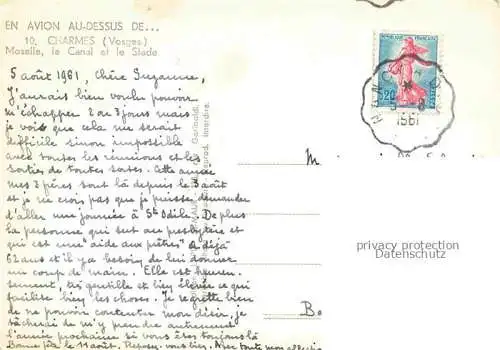 EN AVION AU-DESSUS DE...
10. CHARMES (Vosges)
Moselle, le Canal et le Stade
5 août 1961, Chère Suzanne,
J'aurais bien voulu pouvoir
m'échapper 2 ou 3 jours mais
je vois que cela me serait
difficile sinon impossible
avec toutes les réunions et les
sorties de toutes sortes. Cette année
mes 3 frères sont là depuis le 3 août
et je ne crois pas que je puisse demander
d'aller une journée à Ste Odile. De plus
la personne qui sert au presbytère et
qui est une "aide aux prêtres" a déjà
62 ans et il y a besoin de lui donner
un coup de main. Elle est heureu-
sement, très gentille et bien élevée ce qui
facilite bien les choses. Je regrette bien
de ne pouvoir contenter mon désir, je
tâcherai de m'y prendre autrement
l'année prochaine si vous êtes toujours là
Bonne fête le 11 août. Reposez-vous bien. Avec toute mon affection
REPUBLIQUE FRANÇAISE
0,20
POSTES
1961
M
B
privacy protection
Datenschutz